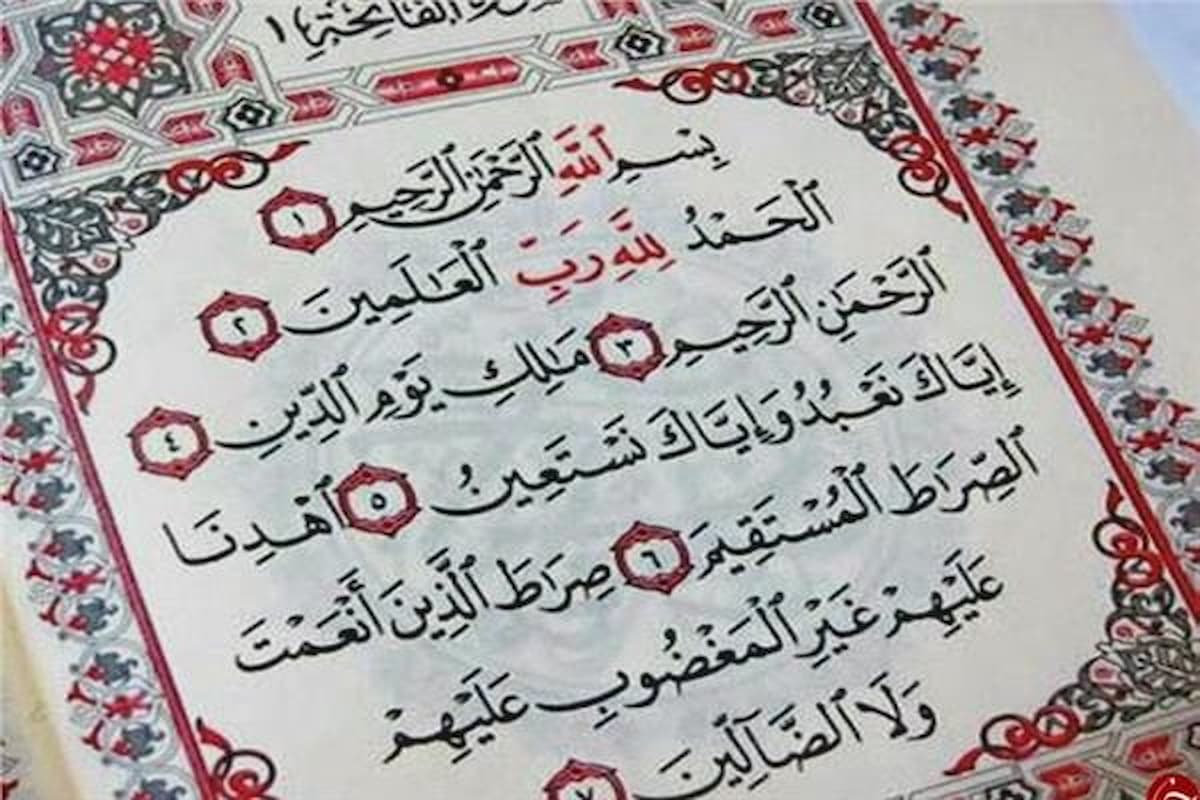 سورة الفاتحة ١
بِسْمِ ٱللَّهِ ٱلرَّحْمَٰنِ ٱلرَّحِيمِ ١
ٱلْحَمْدُ لِلَّهِ رَبِّ ٱلْعَٰلَمِينَ ٢
ٱلرَّحْمَٰنِ ٱلرَّحِيمِ ٣ مَٰلِكِ يَوْمِ ٱلدِّينِ ٤
إِيَّاكَ نَعْبُدُ وَإِيَّاكَ نَسْتَعِينُ ٥ ٱهْدِنَا
ٱلصِّرَاطَ ٱلْمُسْتَقِيمَ ٦ صِرَاطَ ٱلَّذِينَ أَنْعَمْتَ
عَلَيْهِمْ غَيْرِ ٱلْمَغْضُوبِ عَلَيْهِمْ
وَلَا ٱلضَّآلِّينَ ٧